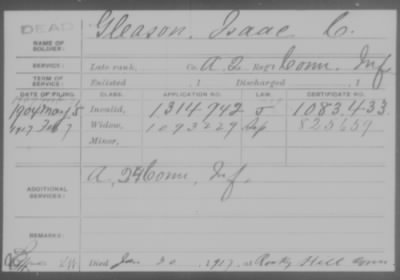 DEAD
NAME OF SOLDIER: Gleason, Isaac C.
SERVICE: Late rank, Co. A, 2 Reg't Conn. Inf
TERM OF SERVICE: Enlisted , 1 Discharged , 1
DATE OF FILING. CLASS. APPLICATION NO. LAW. CERTIFICATE NO.
1904 May 5 Invalid, 1314942 J 1083.433
1917 Feb 7 Widow, 1093229 825659
Minor,
ADDITIONAL SERVICES: A, 24 Conn. Inf.
REMARKS:
Died Jan 20 1917, at Rocky Hill Conn.